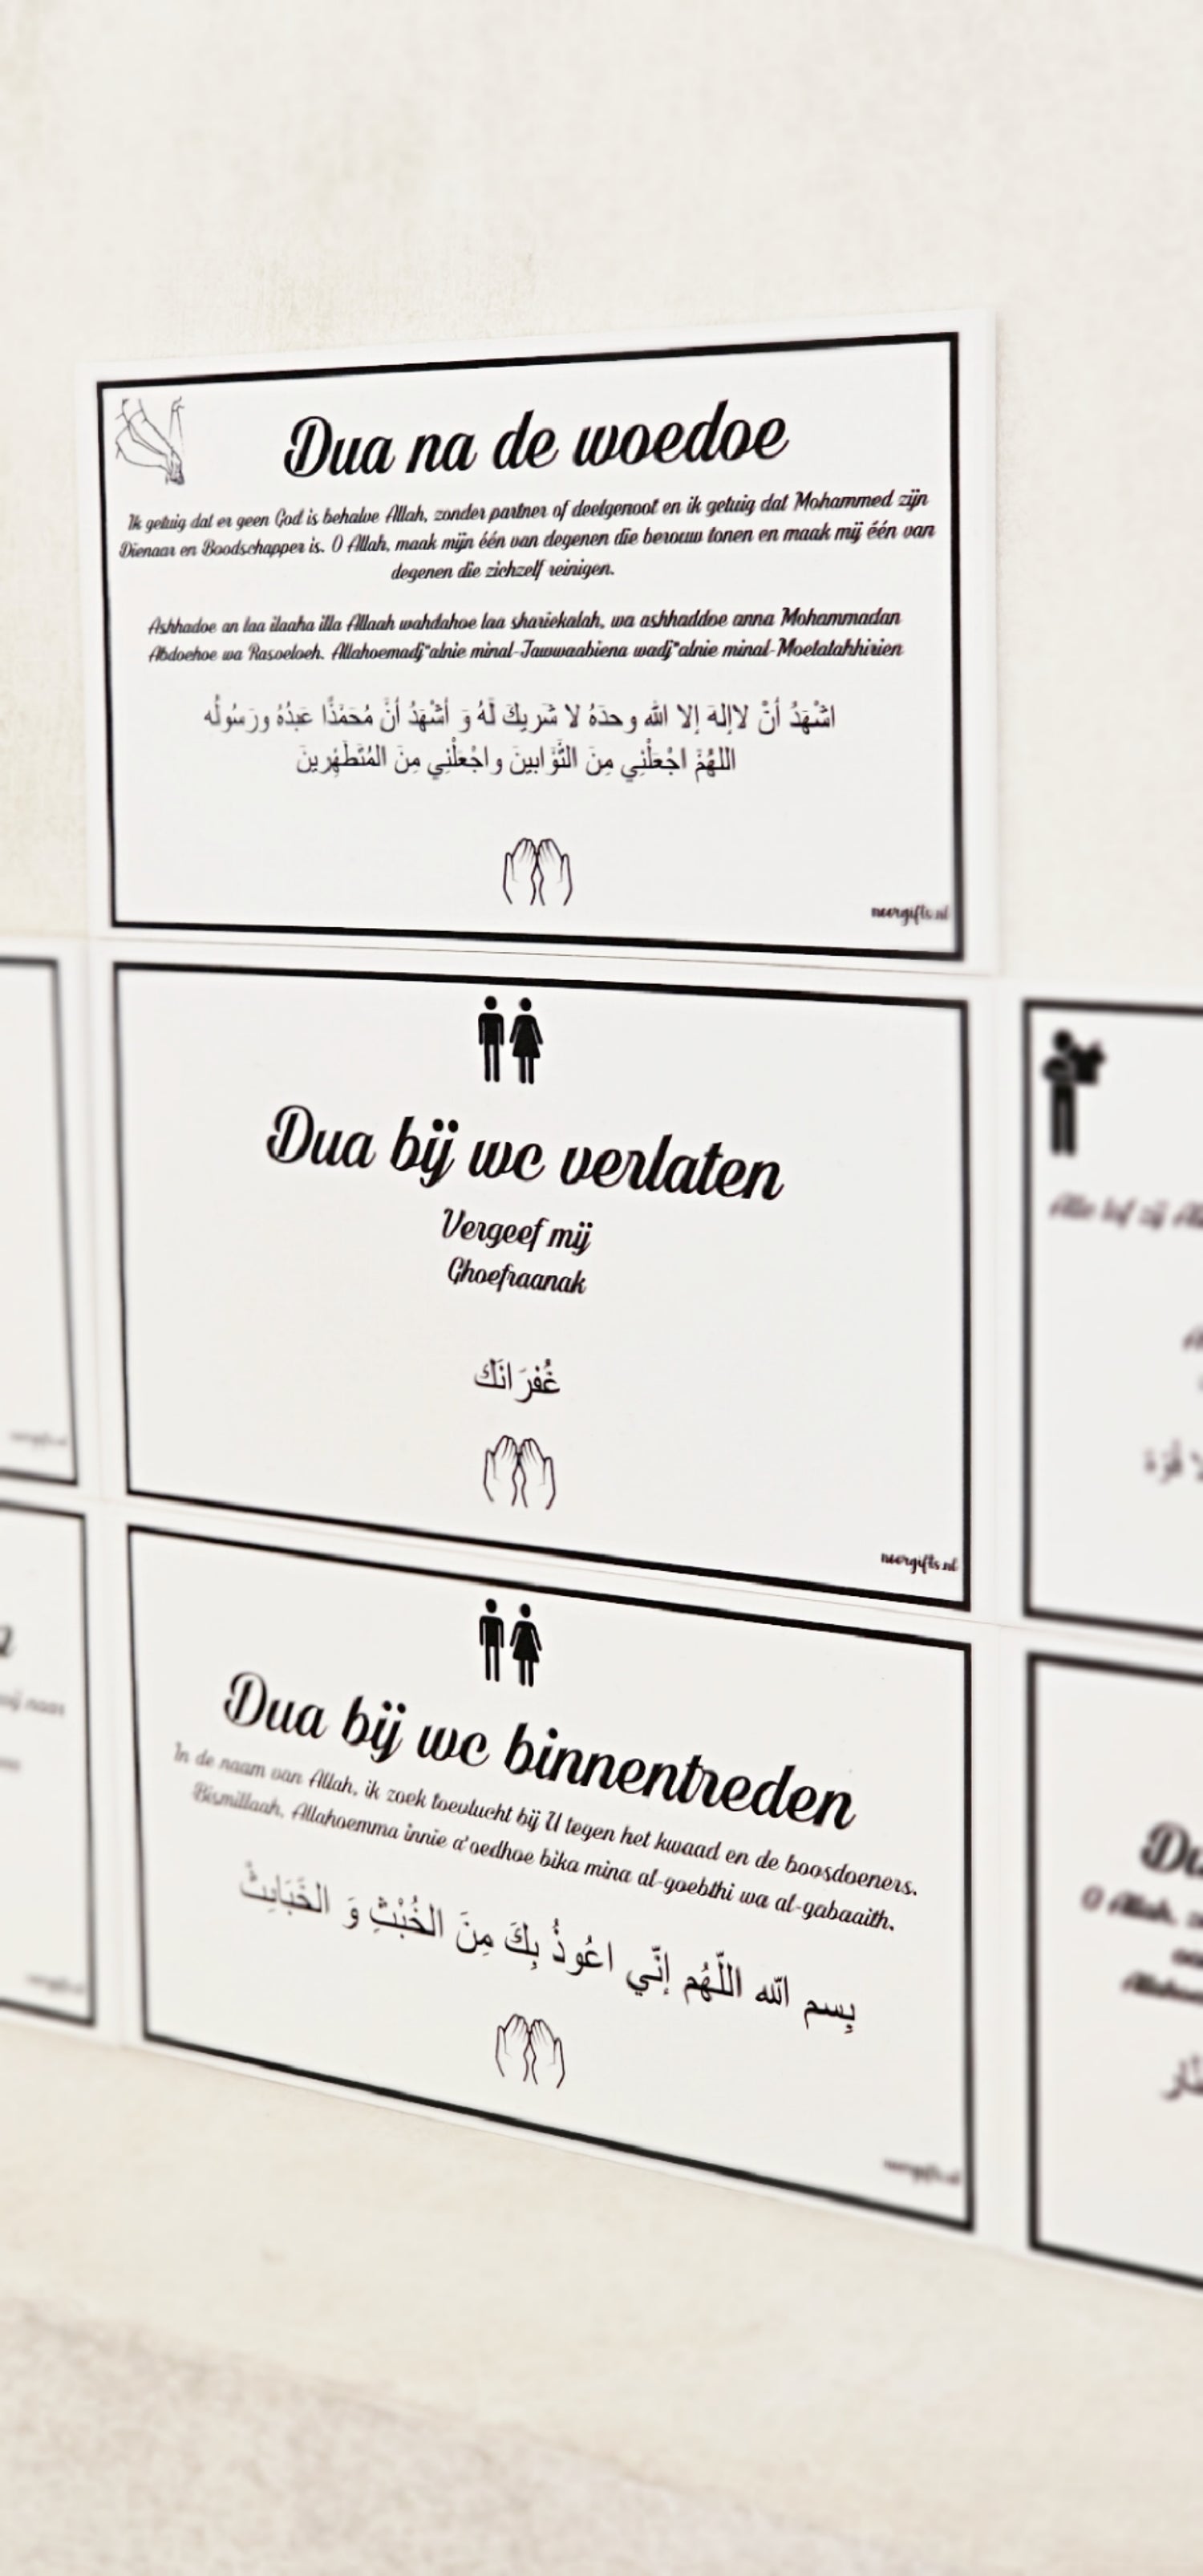 Dua na de woedoe
Ik getuig dat er geen God is behalve Allah, zonder partner of deelgenoot en ik getuig dat Mohammed zijn
Dienaar en Boodschapper is. O Allah, maak mijn één van degenen die berouw tonen en maak mij één van
degenen die zichzelf reinigen.
Ashhadoe an laa ilaaha illa Allaah wahdahoe laa shariekalah, wa ashhaddoe anna Mohammadan
Abdoehoe wa Rasoeloeh. Allahoemadj"alnie minal-Tawwaabiena wadj"alnie minal-Moetatahhirien
اشْهَدُ أنْ لاإلهَ إلا الله وحدَهُ لا شَريكَ لَهُ وَ أشْهَدُ أنَّ مُحَمَّدًا عَبدُهُ ورَسُولُه
اللهُمَّ اجْعَلْنِي مِنَ التَّوَّابينَ واجْعَلْنِي مِنَ المُتَطَهِّرينَ
noorgifts.nl
Dua bij wc verlaten
Vergeef mij
Ghoefraanak
غُفرَانَكَ
noorgifts.nl
Dua bij wc binnentreden
In de naam van Allah, ik zoek toevlucht bij U tegen het kwaad en de boosdoeners.
Bismillaah, Allahoemma innie a'oedhoe bika mina al-goebthi wa al-gabaaith.
بِسم الله اللّهُم إنّي اعُوذُ بِكَ مِنَ الخُبْثِ وَ الخَبَايِثْ
noorgifts.nl
Alle lof zij
O Allah,